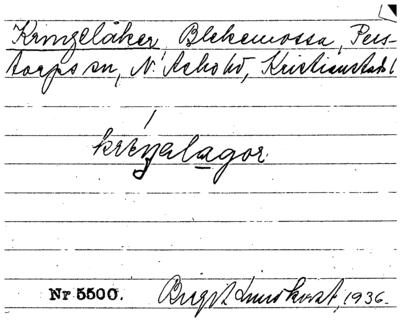 Kringelåker, Blekemossa, Pers-
torps sn, N. Åsbo hd, Kristianstads l
kriŋalagor.
Nr 5500. Birgit Lundkvist, 1936.